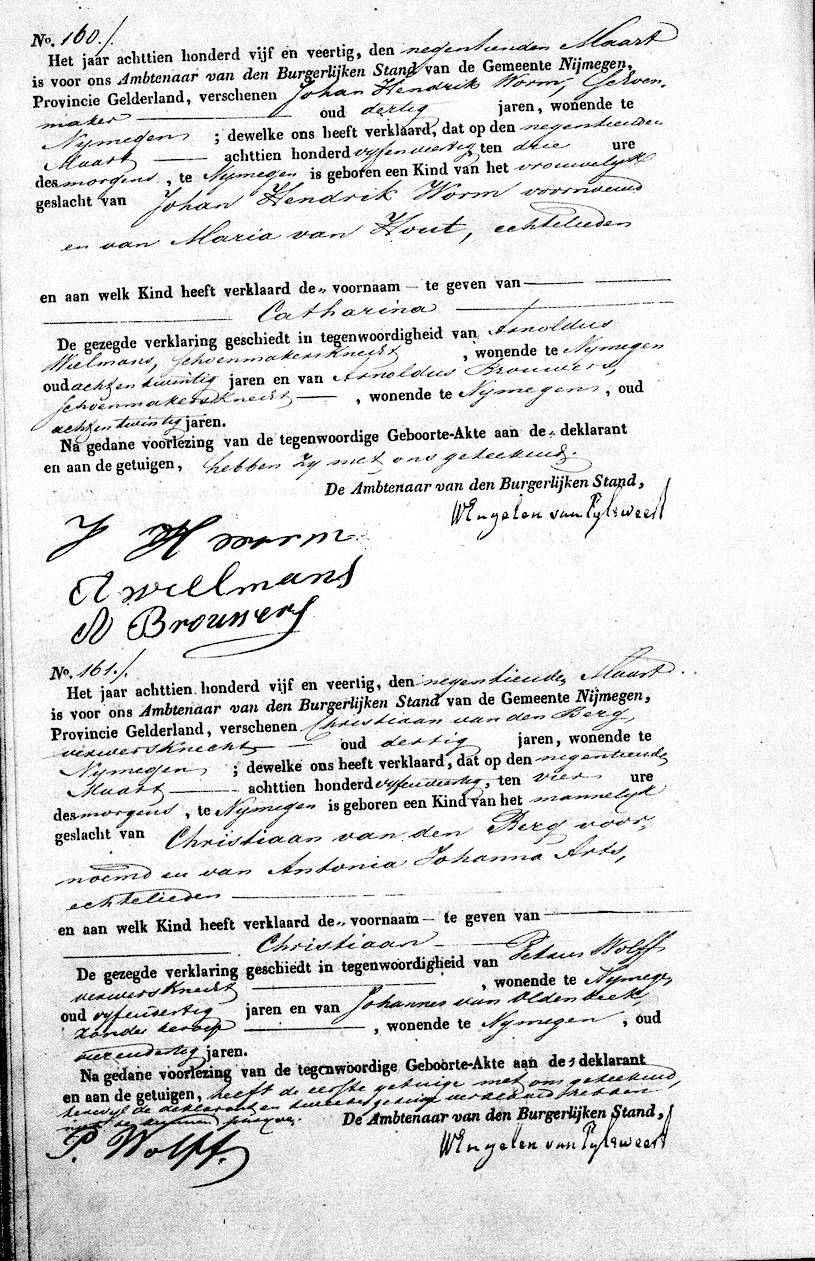 No. 160./
Het jaar achttien honderd vijf en veertig, den negentienden Maart
is voor ons Ambtenaar van den Burgerlijken Stand van de Gemeente Nijmegen,
Provincie Gelderland, verschenen Johan Hendrik Worm, schoen,
maker oud dertig jaren, wonende te
Nymegen ; dewelke ons heeft verklaard, dat op den negentienden
Maart achttien honderd vyfenveertig, ten drie ure
des morgens, te Nymegen is geboren een Kind van het vrouwelyk
geslacht van Johan Hendrik Worm voornoemd
en van Maria van Hout, echtelieden
en aan welk Kind heeft verklaard de „ voornaam — te geven van
Catharina
De gezegde verklaring geschiedt in tegenwoordigheid van Arnoldus
Wielmans, schoenmakersknecht , wonende te Nymegen
oud achtentwintig jaren en van Arnoldus Brouwers,
schoenmakersknecht , wonende te Nymegen, oud
achtentwintig jaren.
Na gedane voorlezing van de tegenwoordige Geboorte-Akte aan de „ deklarant
en aan de getuigen, hebben zy met ons geteekend.
De Ambtenaar van den Burgerlijken Stand,
WEngelen van Pylsweert
J H worm
A wielmans
A Brouwers
No. 161./
Het jaar achttien honderd vijf en veertig, den negentienden Maart
is voor ons Ambtenaar van den Burgerlijken Stand van de Gemeente Nijmegen,
Provincie Gelderland, verschenen Christiaan van den Berg,
verwersknecht oud dertig jaren, wonende te
Nymegen ; dewelke ons heeft verklaard, dat op den negentienden
Maart achttien honderd vyfenveertig, ten vier ure
des morgens, te Nymegen is geboren een Kind van het mannelyk
geslacht van Christiaan van den Berg voor,
noemd en van Antonia Johanna Arts,
echtelieden
en aan welk Kind heeft verklaard de „ voornaam — te geven van
Christiaan
De gezegde verklaring geschiedt in tegenwoordigheid van Petrus Wolff
verwersknecht , wonende te Nymegen
oud vyfendertig jaren en van Johannes van Oldenbeek,
zonder beroep , wonende te Nymegen , oud
vierendertig jaren.
Na gedane voorlezing van de tegenwoordige Geboorte-Akte aan de „ deklarant
en aan de getuigen, heeft de eerste getuige met ons geteekend,
terwyl de deklarant en tweede getuige verklaard hebben
De Ambtenaar van den Burgerlijken Stand,
WEngelen van Pylsweert
P. Wolff.